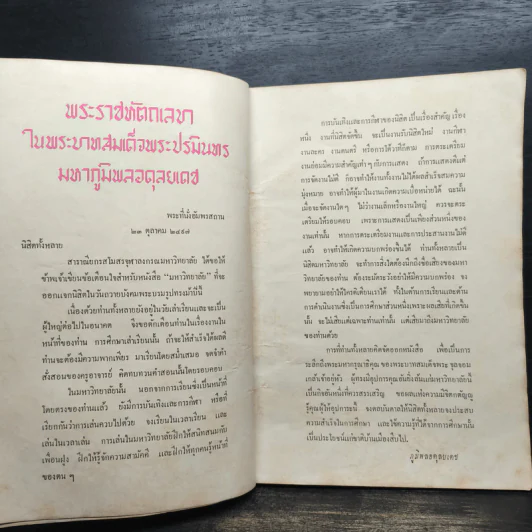 พระราชหัตถเลขา
ในพระบาทสมเด็จพระปรมินทร
มหาภูมิพลอดุลยเดช
พระที่นั่งอัมพรสถาน
๒๑ ตุลาคม ๒๔๙๗
นิสิตทั้งหลาย
สาราณียกรสโมสรจุฬาลงกรณมหาวิทยาลัย ได้ขอให้
ข้าพเจ้าเขียนข้อเตือนใจสำหรับหนังสือ "มหาวิทยาลัย" ที่จะ
ออกแจกนิสิตในวันถวายบังคมพระบรมรูปทรงม้าปีนี้
เนื่องด้วยท่านทั้งหลายยังอยู่ในวัยเล่าเรียนและจะเป็น
ผู้ใหญ่ต่อไปในอนาคต จึงขอตักเตือนท่านในเรื่องงานใน
หน้าที่ของท่าน การศึกษาเล่าเรียนนั้น ถ้าจะให้สำเร็จได้ผลดี
ท่านจะต้องมีความพากเพียร มาเรียนโดยสม่ำเสมอ จดจำคำ
สั่งสอนของครูอาจารย์ คิดทบทวนคำสอนนั้นโดยรอบคอบ
ในมหาวิทยาลัยนั้น นอกจากการเรียนซึ่งเป็นหน้าที่
โดยตรงของท่านแล้ว ยังมีการบันเทิงและการกีฬา หรือที่
เรียกกันว่าการเล่นควบไปด้วย จงเรียนในเวลาเรียน และ
เล่นในเวลาเล่น การเล่นในมหาวิทยาลัยฝึกให้สนิทสนมกับ
เพื่อนฝูง ฝึกให้รู้จักความสามัคคี และฝึกให้ทุกคนรู้หน้าที่
ของตน ๆ
การบันเทิงและการกีฬาของนิสิต เป็นเรื่องสำคัญ เรื่อง
หนึ่ง งานที่นิสิตจัดขึ้น จะเป็นงานรับนิสิตใหม่ งานกีฬา
งานละคร งานดนตรี หรือการโต้วาทีก็ตาม การตระเตรียม
งานย่อมมีความสำคัญเท่า ๆ กับการแสดง ถ้าการแสดงดีแต่
การจัดงานไม่ดี ก็อาจทำให้งานนั้นไม่ได้ผลสำเร็จสมความ
มุ่งหมาย อาจทำให้ผู้มาในงานเกิดความเบื่อหน่ายได้ ฉะนั้น
เมื่อจะจัดงานใด ๆ ไม่ว่างานเล็กหรืองานใหญ่ ควรจะตระ
เตรียมให้รอบคอบ เพราะการแสดงเป็นเพียงส่วนหนึ่งของ
งานเท่านั้น หากการตระเตรียมงานและการประสานงานไม่ดี
แล้ว อาจทำให้เกิดความบกพร่องขึ้นได้ ท่านทั้งหลายเป็น
นิสิตมหาวิทยาลัย จะทำการสิ่งใดต้องนึกถึงชื่อเสียงของมหา
วิทยาลัยของท่านด้วย ต้องระมัดระวังอย่าให้มีความบกพร่อง จง
พยายามอย่าให้ใครติเตียนเราได้ ทั้งในด้านการเรียนและด้าน
การดำเนินงานซึ่งเป็นการศึกษาส่วนหนึ่งเพราะผลเสียที่เกิดขึ้น
นั้น จะไม่เสียแต่เฉพาะท่านเท่านั้น แต่เสียมาถึงมหาวิทยาลัย
ของท่านด้วย
การที่ท่านทั้งหลายคิดจัดออกหนังสือ เพื่อเป็นการ
ระลึกถึงพระมหากรุณาธิคุณ ของพระบาทสมเด็จพระ จุลจอม
เกล้าเจ้าอยู่หัว ผู้ทรงมีอุปการคุณอันยิ่งล้นแก่มหาวิทยาลัยนี้
เป็นกิจอันหนึ่งที่ควรสรรเสริญ ขอผลแห่งความมีกตัญญู
รู้คุณผู้ให้อุปการะนี้ จงดลบันดาลให้นิสิตทั้งหลายจงประสบ
ความสำเร็จในการศึกษา และใช้ความรู้ที่ได้จากการศึกษานั้น
เป็นประโยชน์แก่ชาติบ้านเมืองสืบไป
ภูมิพลอดุลยเดช